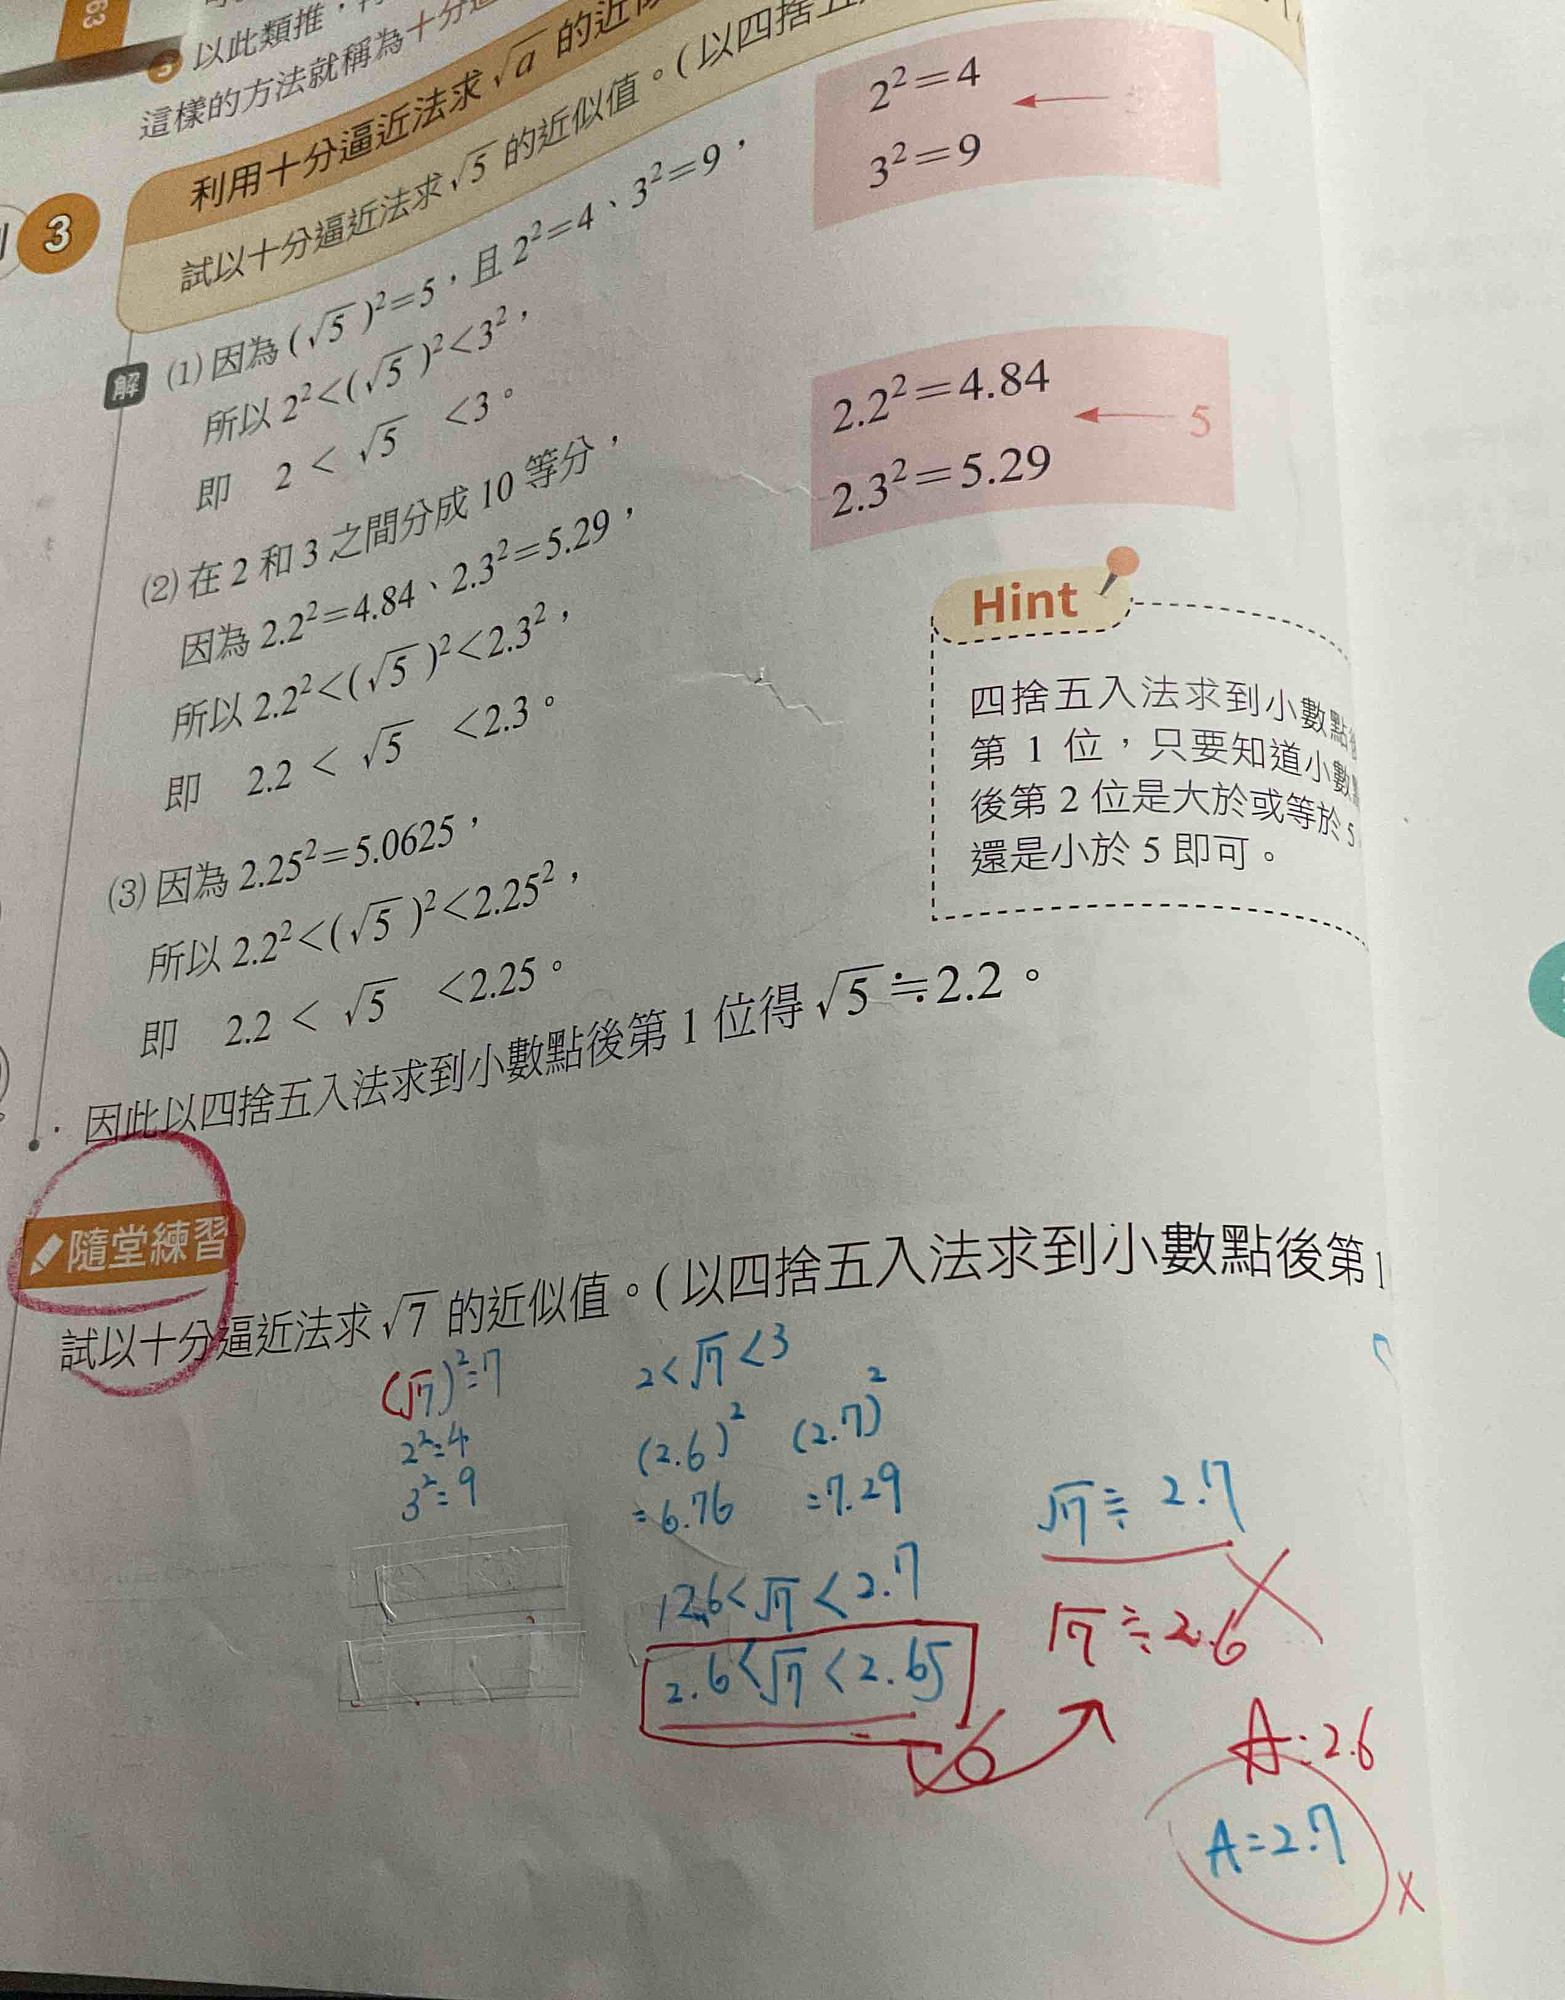 63
以此類推，
這樣的方法就稱為十分
3
利用十分逼近法求√a的近
試以十分逼近法求√5的近似值。(以四捨
解
(1)因為(√5)²=5，且2²=4、3²=9，
所以2²<(√5)²<3²，
即 2<√5<3。
2²=4
3²=9
(2)在2和3之間分成10等分，
因為2.2²=4.84、2.3²=5.29，
所以2.2²<(√5)²<2.3²，
即 2.2<√5<2.3。
2.2²=4.84
2.3²=5.29
5
(3)因為2.25²=5.0625，
所以2.2²<(√5)²<2.25²，
即 2.2<√5<2.25。
因此以四捨五入法求到小數點後第1位得√5≒2.2。
Hint
四捨五入法求到小數點
第1位，只要知道小數
後第2位是大於或等於5
還是小於5即可。
隨堂練習
試以十分逼近法求√7的近似值。(以四捨五入法求到小數點後第1
(√7)²=7
2²=4
3²=9
2<√7<3
(2.6)² (2.7)²
=6.76 =7.29
2.6<√7<2.7
2.6<√7<2.65
√7≒2.7
√7≒2.6
A:2.6
A=2.7